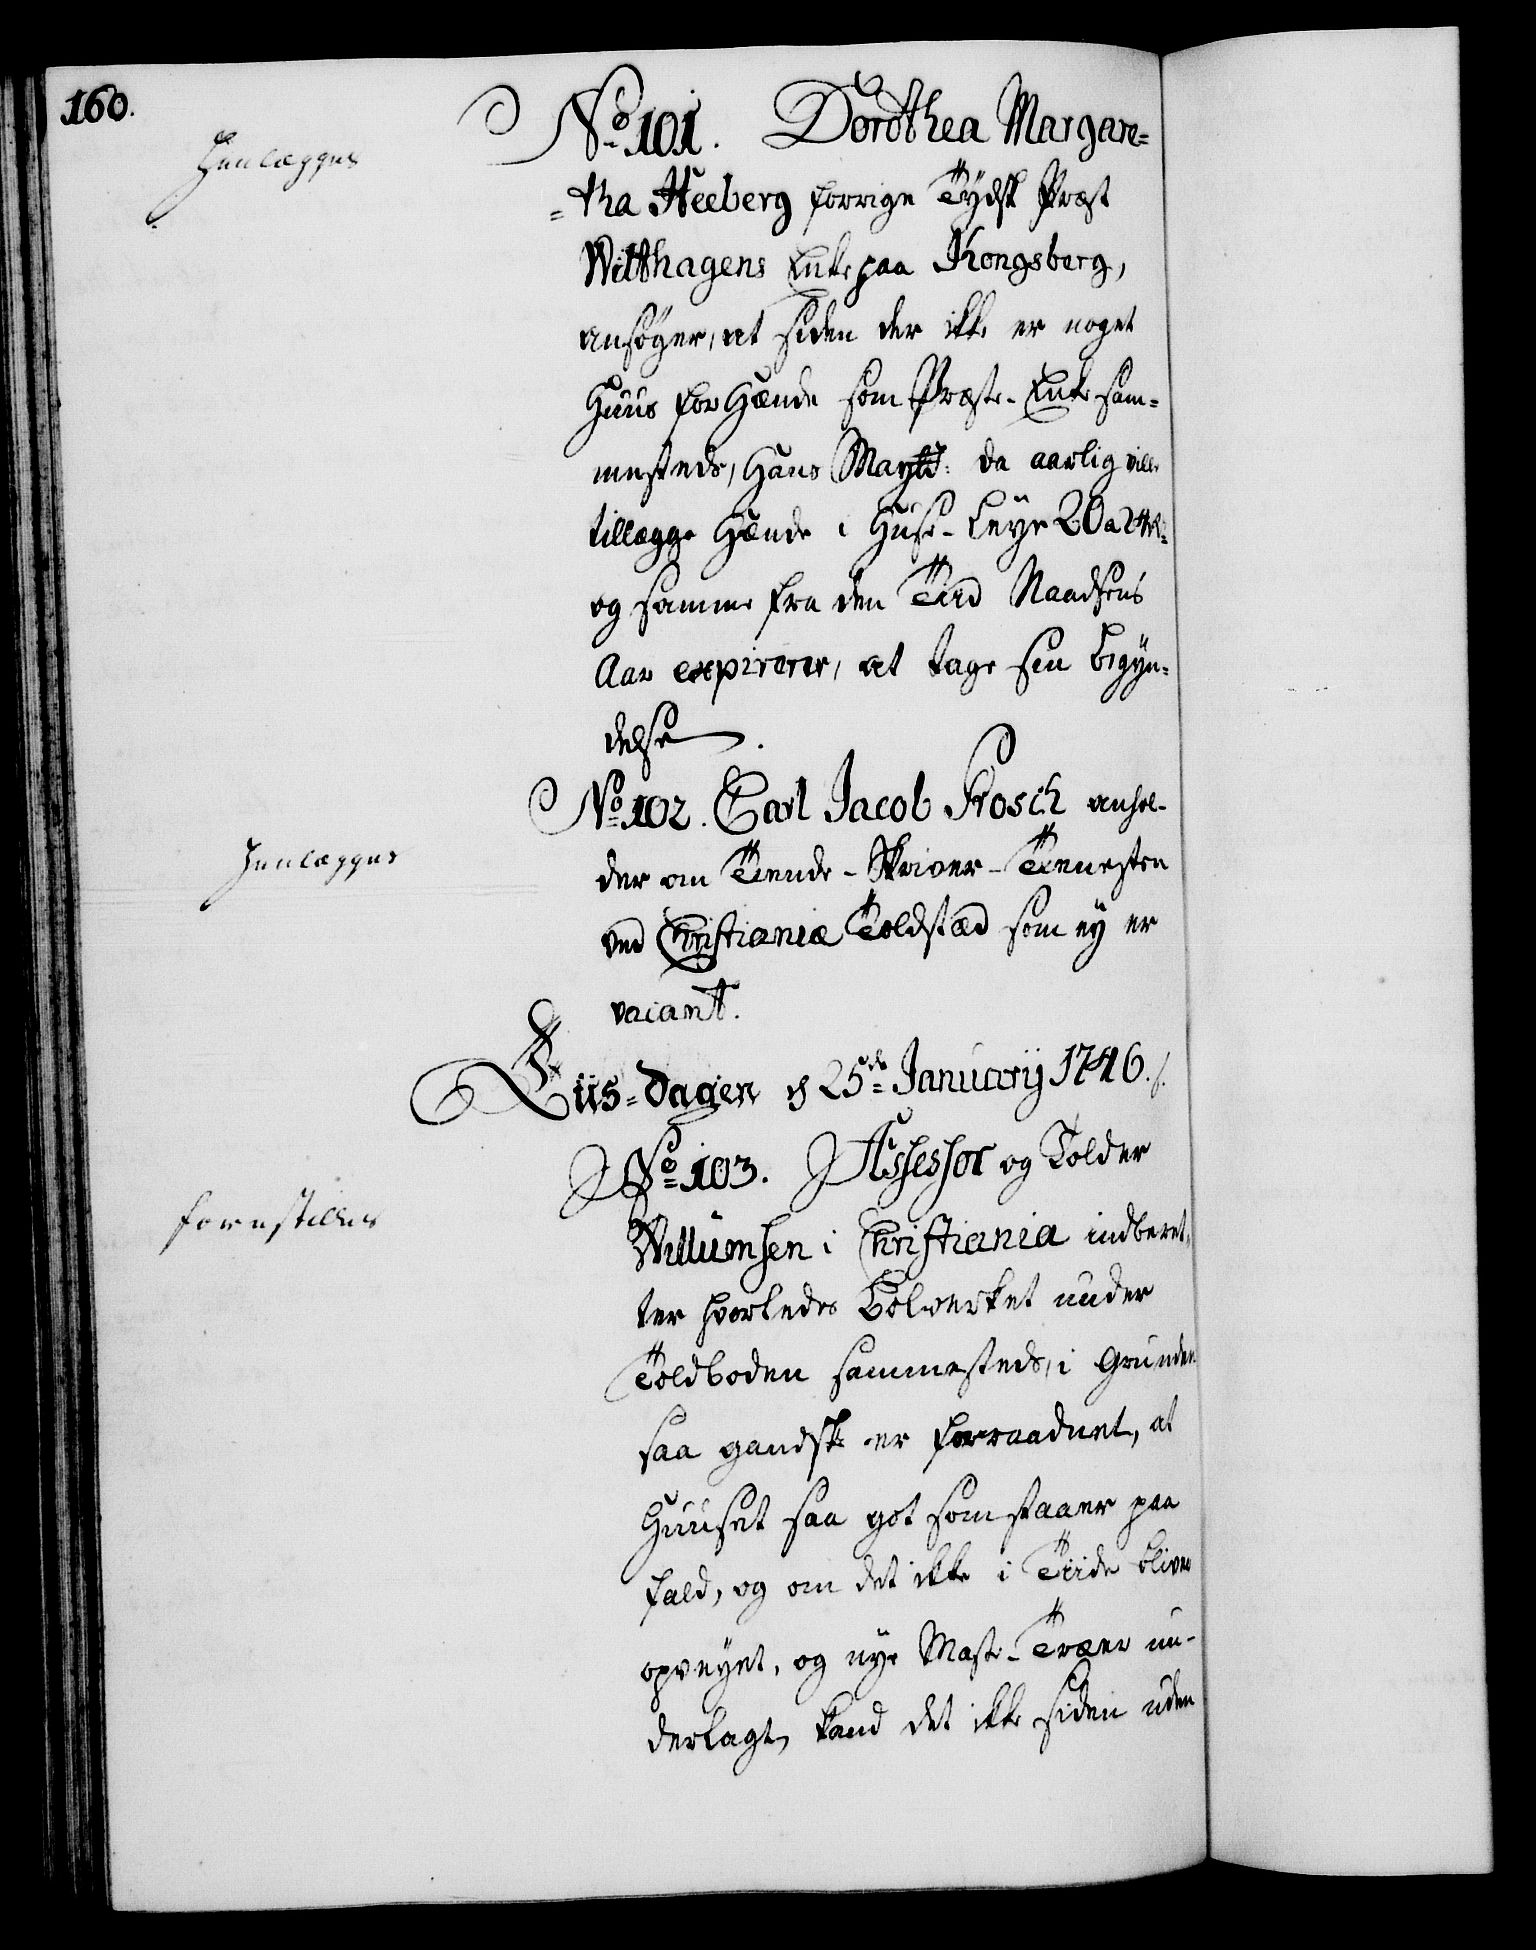 160.
Henlægges
No 101. Dorothea Margare-
=tha Heeberg forrige Tydsk Præst
Witthagens Enke paa Kongsberg,
ansöger, at siden der ikke er noget
Huus for Hænde som Præste-Enke sam-
mesteds, Hans Maytt: da aarlig ville
tillægge Hænde i Huse-Leye 20 a
og samme fra den Tiid Naadsens
Aar expirerer, at tage sin Begyn-
delse.
Henlægges
No 102. Carl Jacob Frosch anhol-
der om Tiende-Skriver-Tienesten
ved Christianiæ Toldstæd som ey er
vacant.
Tiis-dagen d 25de Januarij 1746.
forestilles
No 103. Assessor og Tolder
Willumsen i Christiania indberet-
ter hvorledes Bolverket under
Toldboden sammesteds, i Grunden
saa gandske er forraadnet, at
Huuset saa got som staaer paa
fald, og om det ikke i Tiide bliver
opveyet, og nye Maste-Træer un-
derlagt, kand det ikke siden uden